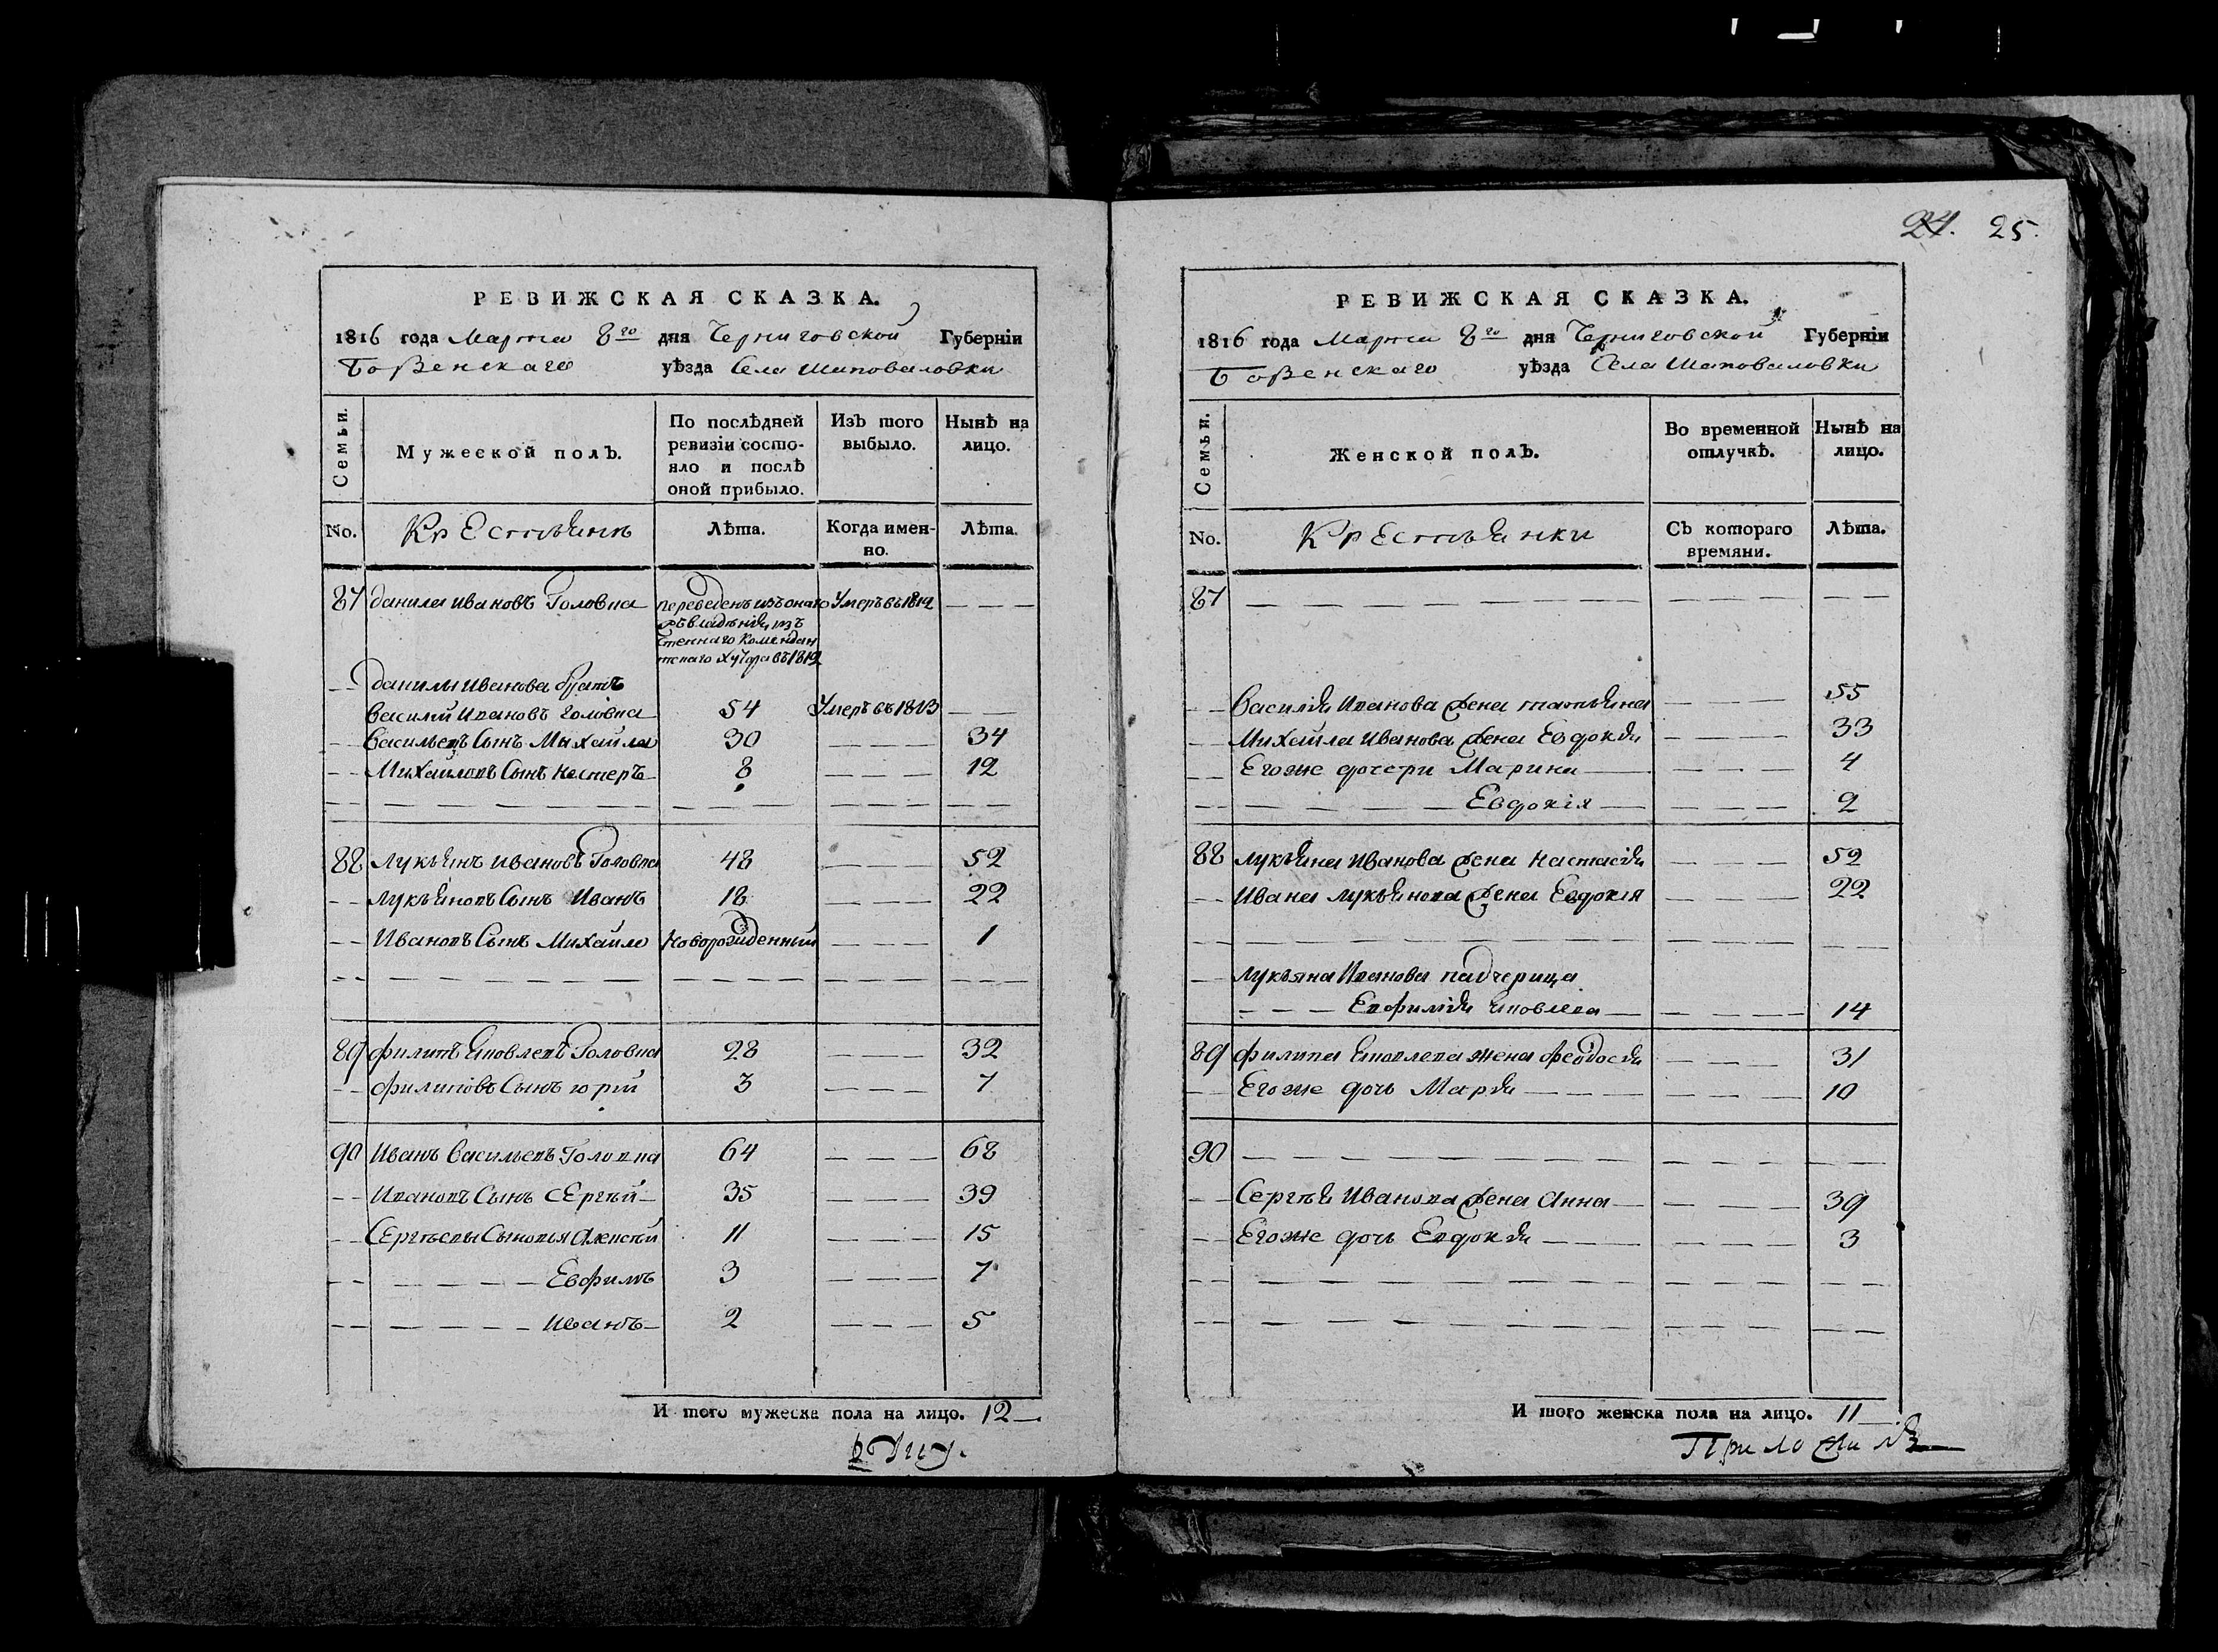 РЕВИЖСКАЯ СКАЗКА.
1816 года Марта 8го дня Черниговской Губерніи
Борзенскаго уѣзда Села Шаповаловки
Семьи.
Мужеской полъ.
По послѣдней ревизіи состояло и послѣ оной прибыло.
Изъ того выбыло.
Нынѣ на лицо.
No. Крестьянъ Лѣта. Когда именно. Лѣта.
87 данила Ивановъ Головна переведенъ изъ Умеръ въ 1812
хутора въ 1812
данилы Иванова братъ
Василий Ивановъ Головна 54 Умеръ въ 1813
Васильевъ Сынъ Михайла 30 34
Михайловъ Сынъ Нестеръ 8 12
88 Лукьянъ Ивановъ Головна 48 52
Лукьяновъ Сынъ Иванъ 18 22
Ивановъ Сынъ Михайло Новорожденный 1
89 Филипъ Яковлевъ Головна 28 32
Филиповъ Сынъ юрій 3 7
90 Иванъ Васильевъ Головна 64 68
Ивановъ Сынъ Сергѣй 35 39
Сергѣевы Сыновья Алексѣй 11 15
Евфимъ 3 7
Иванъ 2 5
И того мужеска пола на лицо. 12
24. 25.
РЕВИЖСКАЯ СКАЗКА.
1816 года Марта 8го дня Черниговской Губерніи
Борзенскаго уѣзда Села Шаповаловки
Семьи.
Женской полъ.
Во временной отлучкѣ.
Нынѣ на лицо.
No. Крестьянки Съ котораго времяни. Лѣта.
87
Василія Иванова жена татьяна 55
Михайла Иванова жена Евдокія 33
Егоже дочери Марина 4
Евдокія 2
88 лукьяна Иванова жена Настасія 52
Ивана лукьянова жена Евдокія 22
Лукьяна Иванова падчерица
Евфимія Яковлева 14
89 филипа Яковлева жена феодосія 31
Егоже дочь Марія 10
90
Сергѣя Иванова жена Анна 39
Егоже дочь Евдокія 3
И того женска пола на лицо. 11
Приложилъ